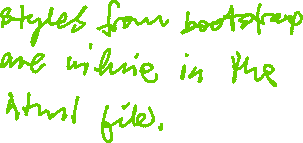 styles from bootstrap
are inline in the
html file.